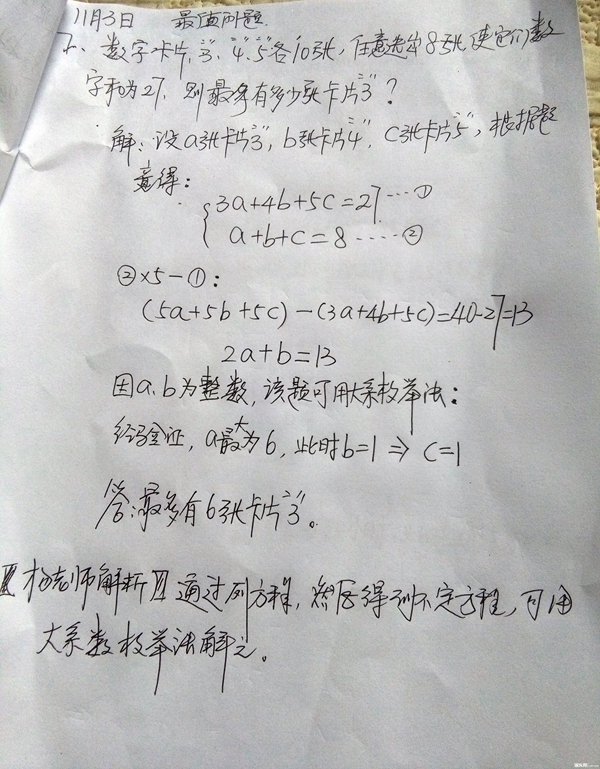 11月3日 最值问题.
7、数字卡片“3”、“4”、“5”各10张,任意选出8张,使它们数
字和为27,则最多有多少张卡片“3”?
解:设a张卡片“3”,b张卡片“4”,c张卡片“5”,根据题
意得:
3a+4b+5c=27……①
a+b+c=8……②
②×5-①:
(5a+5b+5c)-(3a+4b+5c)=40-27=13
2a+b=13
因a、b为整数,该题可用大系数枚举法:
经验证,a最大为6,此时b=1⇒c=1
答:最多有6张卡片“3”。
【杨老师解析】通过列方程,然后得到不定方程,可用
大系数枚举法解之。